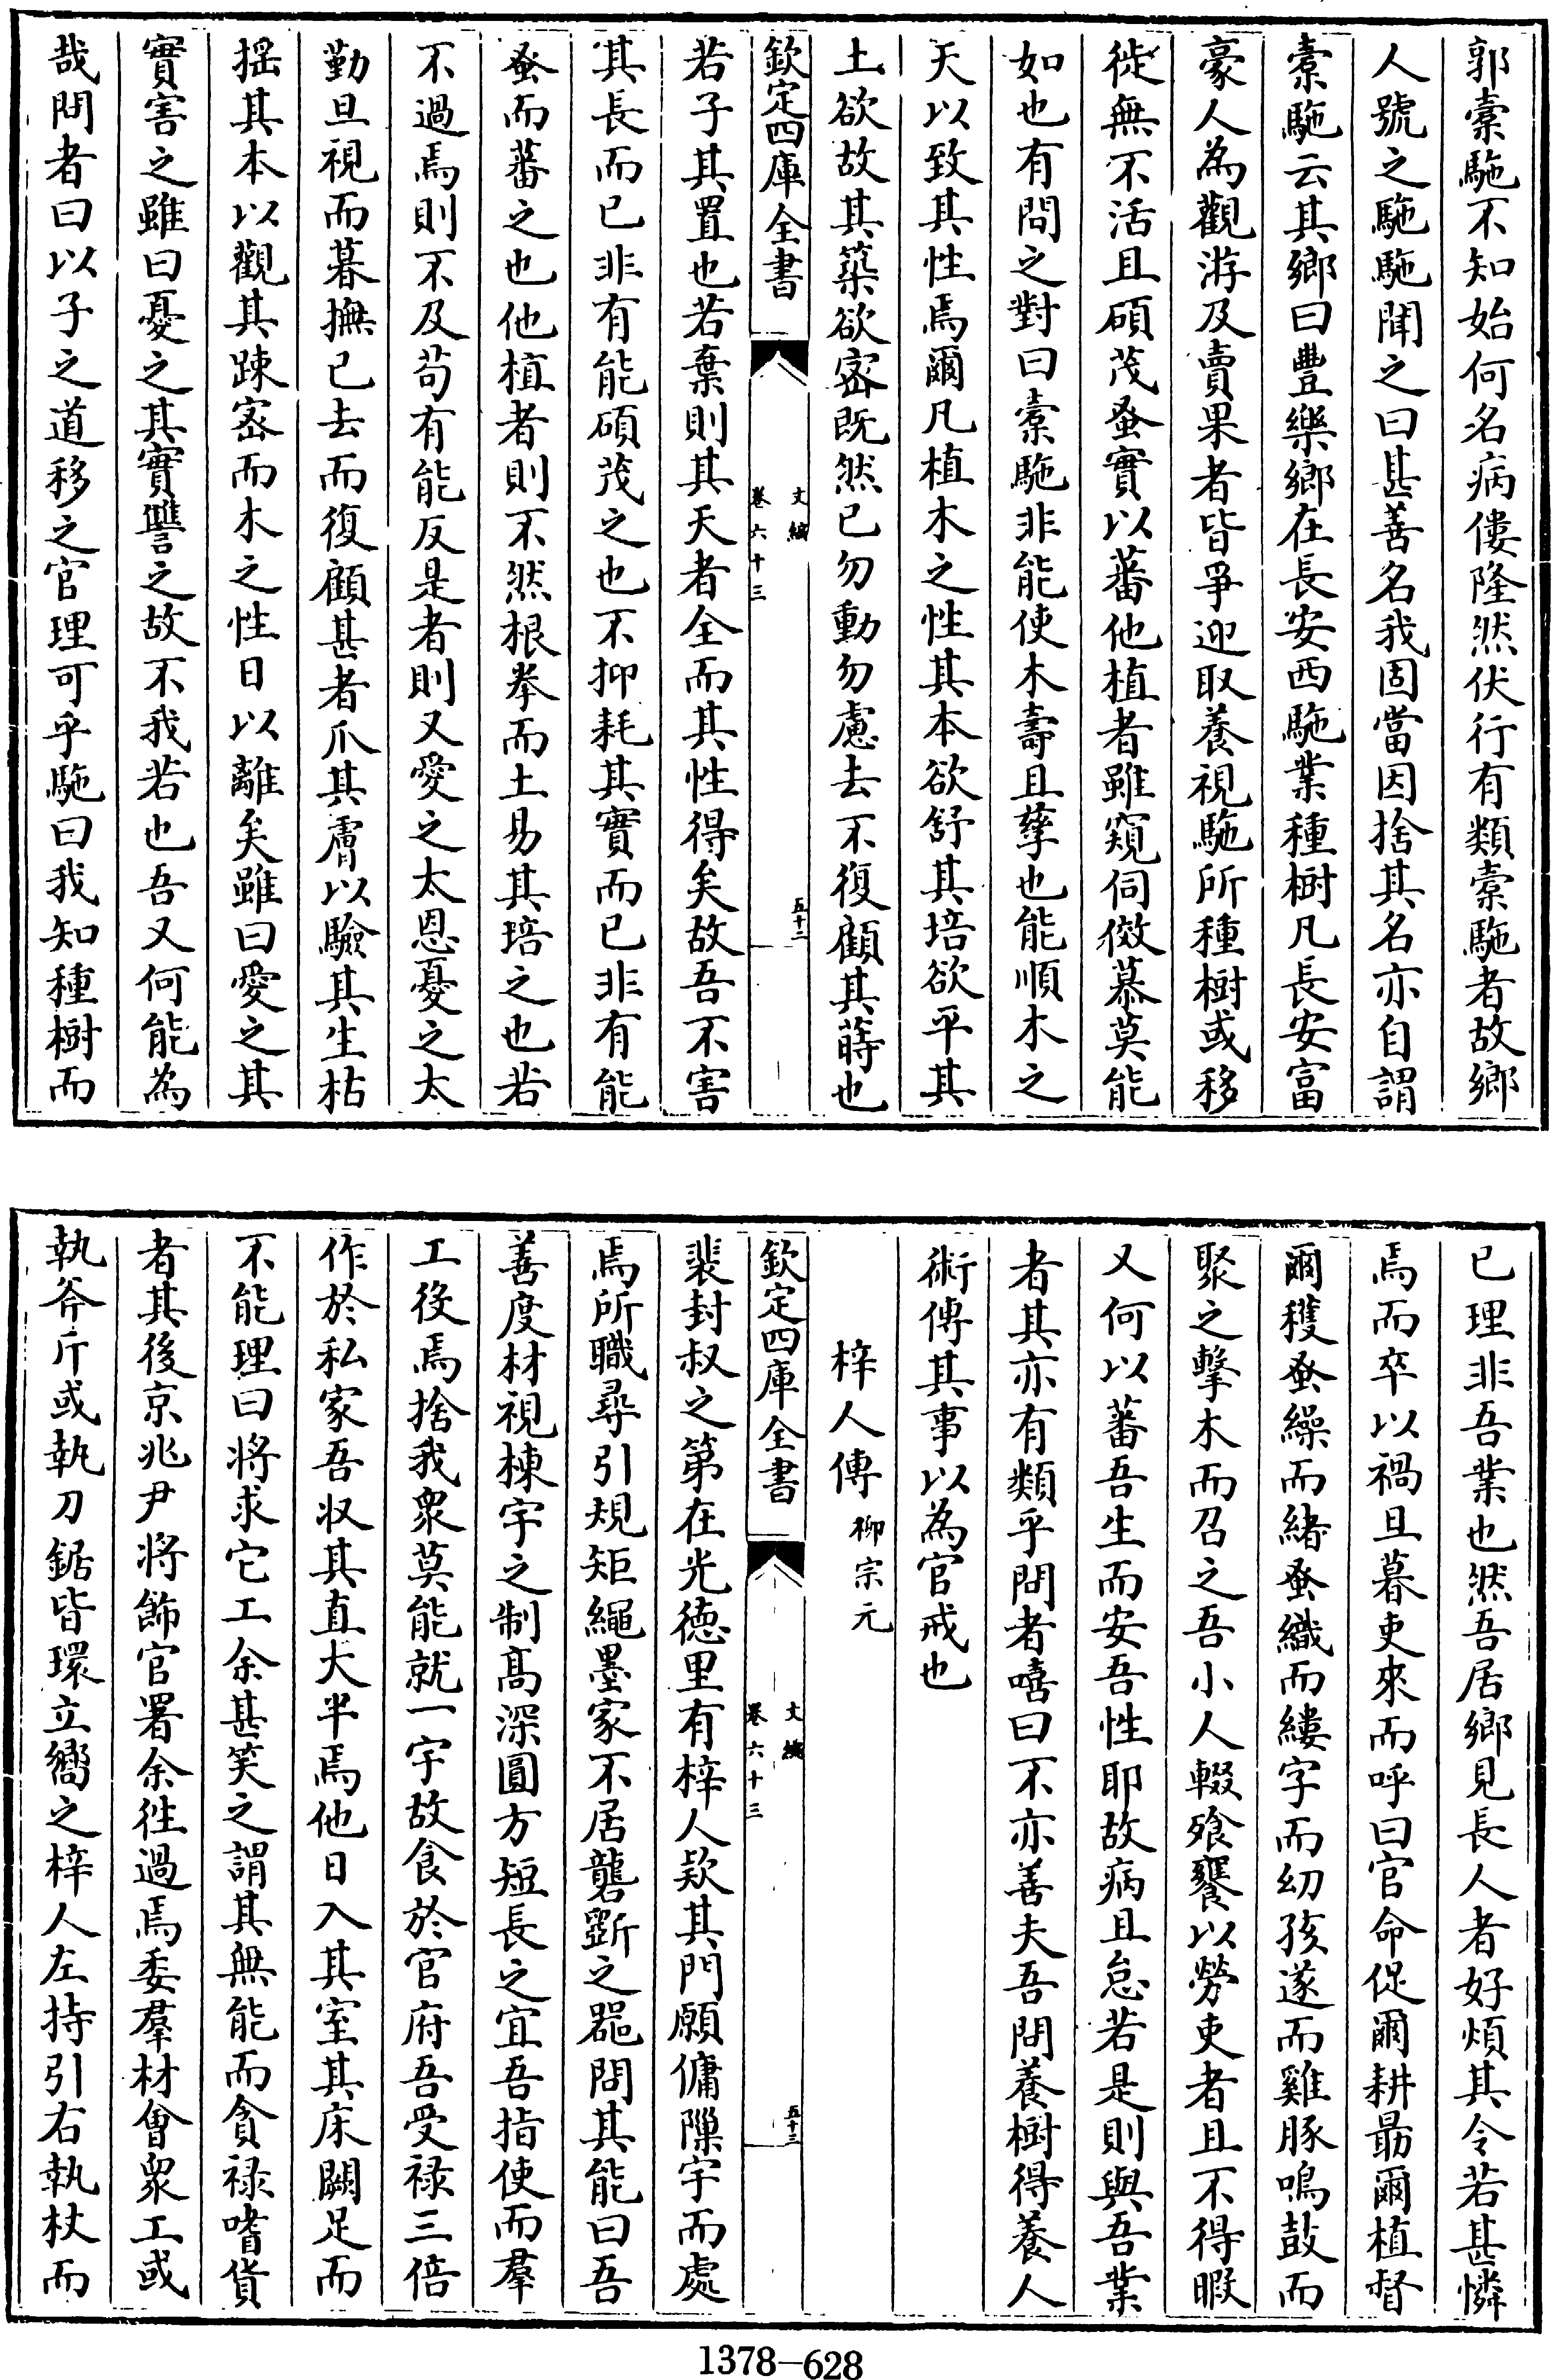 郭橐駞不知始何名病僂隆然伏行有類橐駞者故鄉
人號之駞駞聞之曰甚善名我固當因捨其名亦自謂
橐駞云其鄉曰豐樂鄉在長安西駞業種樹凡長安富
豪人為觀游及賣果者皆爭迎取養視駞所種樹或移
徙無不活且碩茂蚤實以蕃他植者雖窺伺傚慕莫能
如也有問之對曰橐駞非能使木壽且孳也能順木之
天以致其性焉爾凡植木之性其本欲舒其培欲平其
土欲故其築欲宻既然已勿動勿慮去不復顧其蒔也
欽定四庫全書
文編
卷六十三
五十二
若子其置也若棄則其天者全而其性得矣故吾不害
其長而已非有能碩茂之也不抑耗其實而已非有能
蚤而蕃之也他植者則不然根拳而土易其培之也若
不過焉則不及苟有能反是者則又愛之太恩憂之太
勤旦視而暮撫已去而復顧甚者爪其膚以驗其生枯
揺其本以觀其疎宻而木之性日以離矣雖曰愛之其
實害之雖曰憂之其實讐之故不我若也吾又何能為
哉問者曰以子之道移之官理可乎駞曰我知種樹而
已理非吾業也然吾居鄉見長人者好煩其令若甚憐
焉而卒以禍旦暮吏來而呼曰官命促爾耕朂爾植督
爾穫蚤繰而緒蚤織而縷字而幼孩遂而雞豚鳴鼓而
聚之擊木而召之吾小人輟飱饔以勞吏者且不得暇
又何以蕃吾生而安吾性耶故病且怠若是則與吾業
者其亦有類乎問者嘻曰不亦善夫吾問養樹得養人
術傳其事以為官戒也
梓人傳 柳宗元
欽定四庫全書
文編
卷六十三
五十三
裴封叔之第在光徳里有梓人欵其門願傭隟宇而處
焉所職尋引規矩繩墨家不居礱斲之器問其能曰吾
善度材視棟宇之制髙深圓方短長之宜吾指使而羣
工役焉捨我衆莫能就一宇故食於官府吾受禄三倍
作於私家吾收其直大半焉他日入其室其床闕足而
不能理曰將求它工余甚笑之謂其無能而貪禄嗜貨
者其後京兆尹將飾官署余徃過焉委羣材會衆工或
執斧斤或執刀鋸皆環立嚮之梓人左持引右執杖而
1378—628